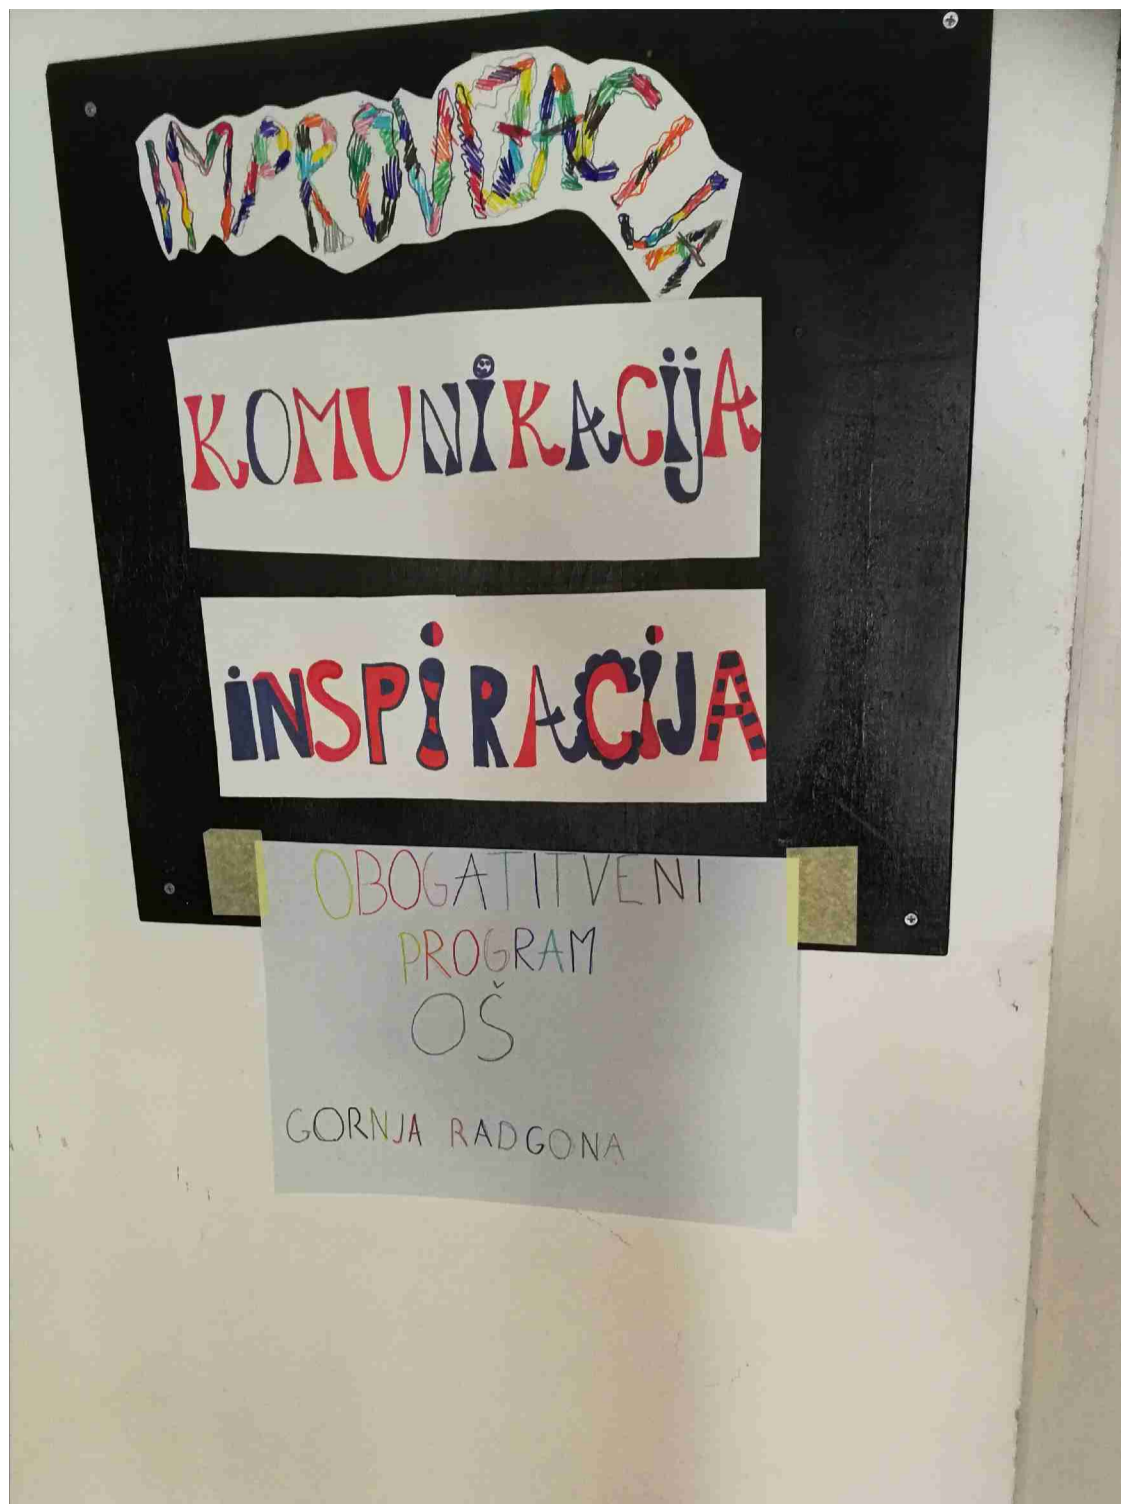 IMPROVIZACIJA
KOMUNIKACIJA
INSPIRACIJA
OBOGATITVENI
PROGRAM
OŠ
GORNJA RADGONA